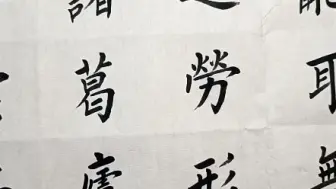 耳無
之勞形
諸葛廬